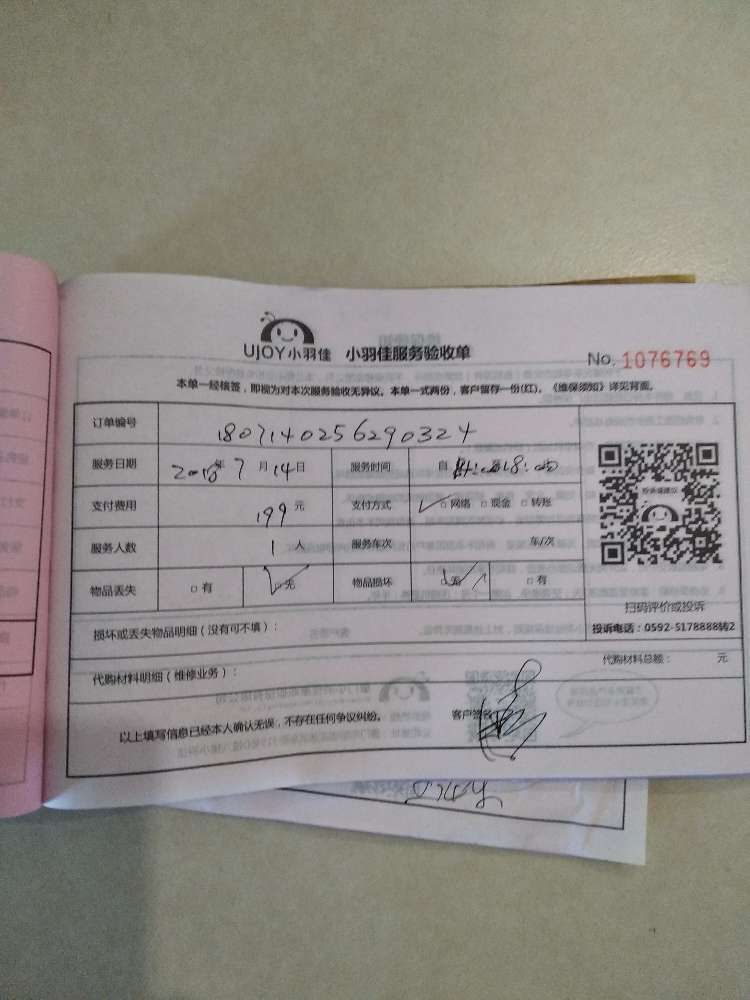 UJOY小羽佳 小羽佳服务验收单 No. 1076769
本单一经核签，即视为对本次服务验收无异议。本单一式两份，客户留存一份(红)。《维保须知》详见背面。
订单编号 1807140256290324
服务日期 2018年7月14日 服务时间 自 至 18:00
支付费用 199元 支付方式 ✓□网络 □现金 □转账
服务人数 1人 服务车次 车/次
物品丢失 □有 □无 物品损坏 □无 □有
扫码评价或投诉
损坏或丢失物品明细（没有可不填）： 投诉电话：0592-5178888转2
代购材料明细（维修业务）： 代购材料总额： 元
以上填写信息已经本人确认无误，不存在任何争议纠纷。 客户签名